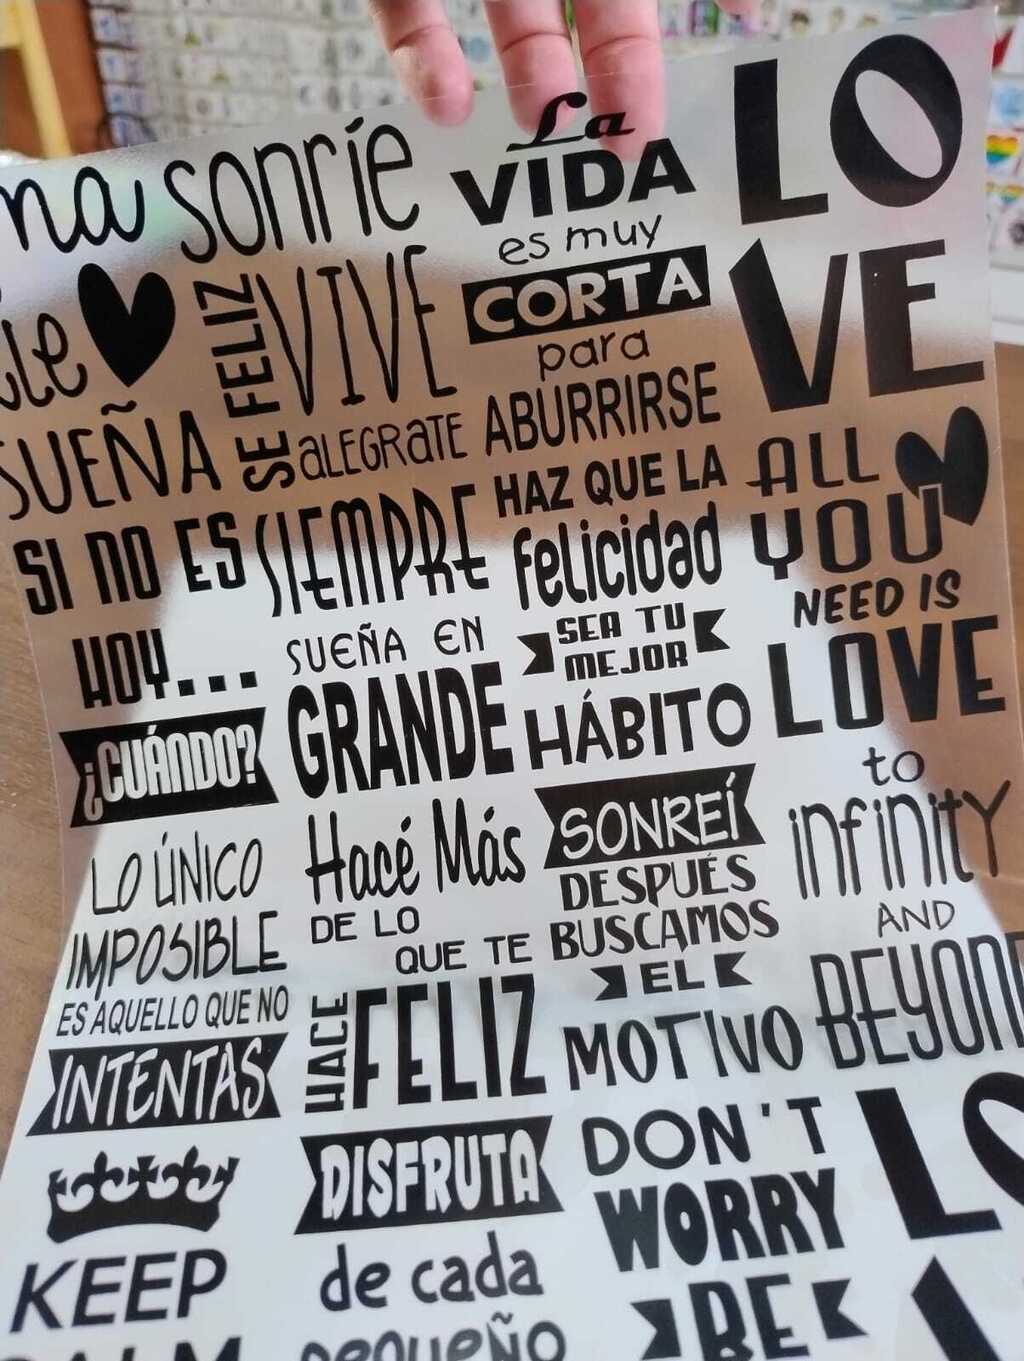 sonríe
SUEÑA
SE FELIZ
VIVE
ALEGRATE
La
VIDA
es muy
CORTA
para
ABURRIRSE
LO
VE
SI NO ES
HOY...
¿CUÁNDO?
SIEMPRE
SUEÑA EN
GRANDE
HAZ QUE LA
felicidad
SEA TU
MEJOR
HÁBITO
ALL
YOU
NEED IS
LOVE
LO ÚNICO
IMPOSIBLE
ES AQUELLO QUE NO
INTENTAS
Hacé Más
DE LO
QUE TE
HACE
FELIZ
SONREÍ
DESPUÉS
BUSCAMOS
EL
MOTIVO
to
infinity
AND
BEYOND
KEEP
CALM
DISFRUTA
de cada
pequeño
DON'T
WORRY
BE
LO